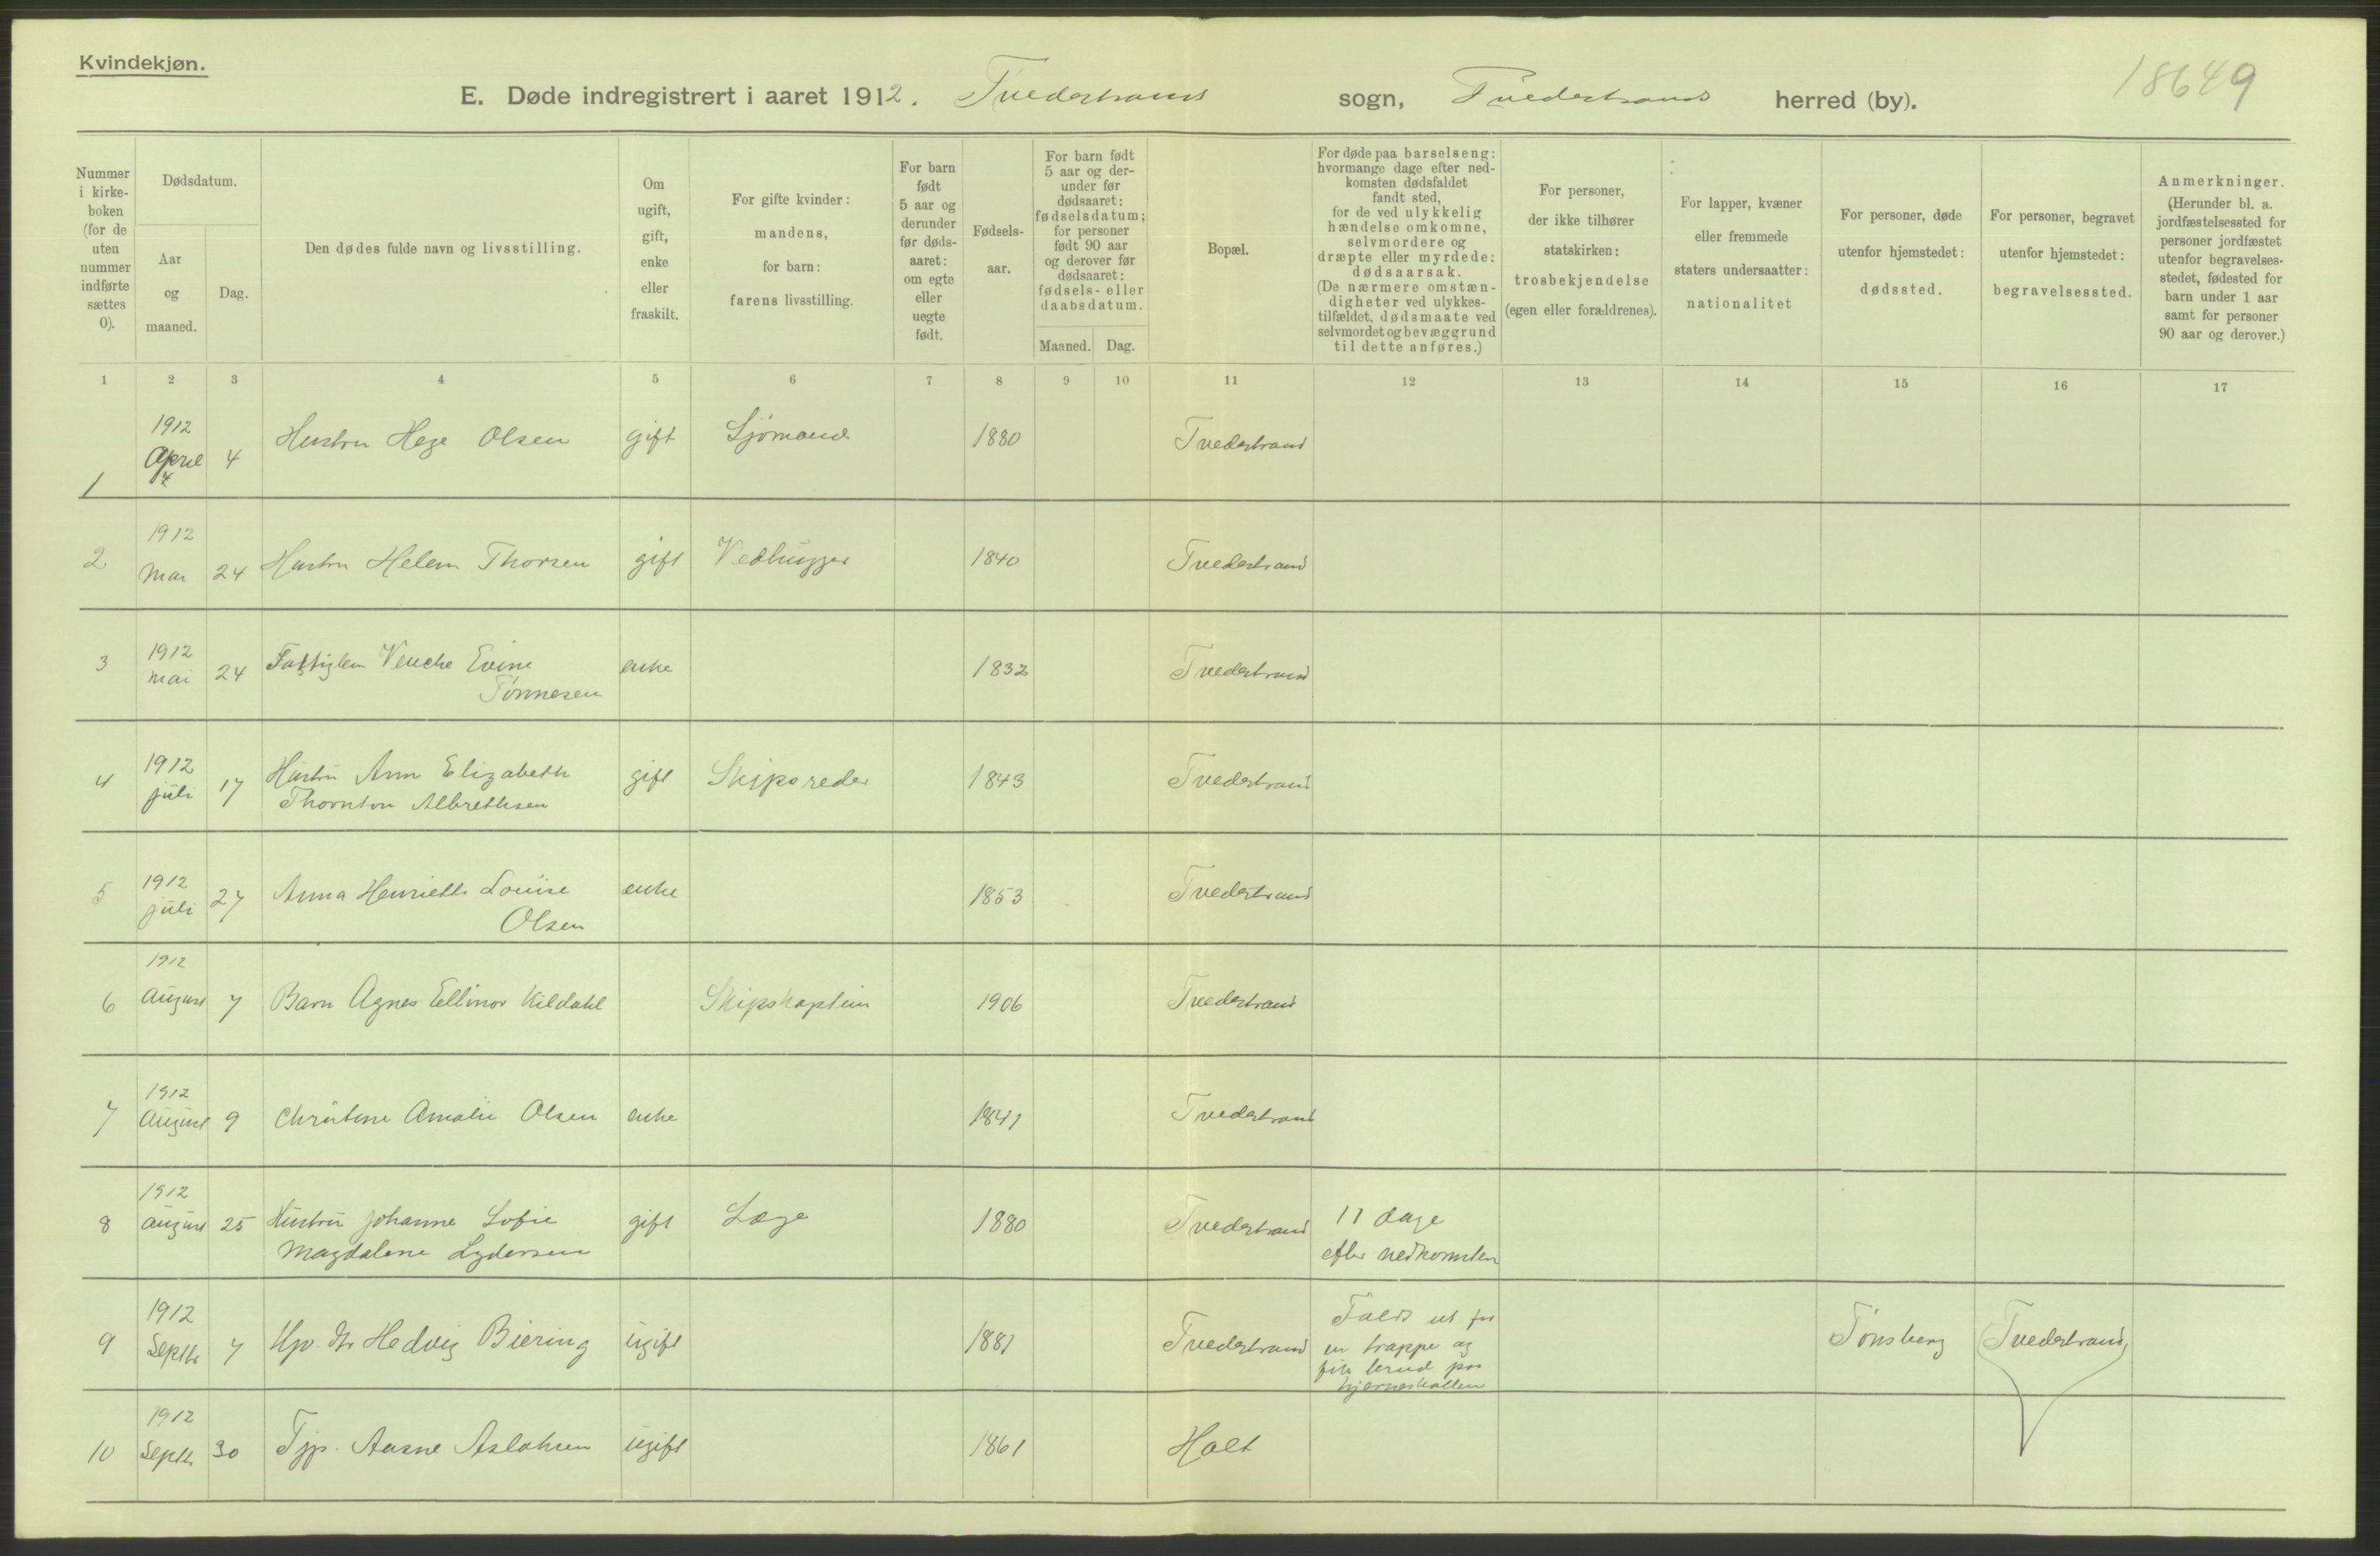 Kvindekjøn.
18649
E. Døde indregistrert i aaret 1912. Tvedestrand sogn, Tvedestrand herred (by).
Nummer i kirke- boken (for de uten nummer indførte sættes 0).
Dødsdatum.
Aar og maaned.
Dag.
Den dødes fulde navn og livsstilling.
Om ugift, gift, enke eller fraskilt.
For gifte kvinder: mandens, for barn: farens livsstilling.
For barn født 5 aar og derunder før døds- aaret: om egte eller uegte født.
Fødsels- aar.
For barn født 5 aar og der- under før dødsaaret: fødselsdatum; for personer født 90 aar og derover før dødsaaret: fødsels- eller daabsdatum.
Maaned. Dag.
Bopæl.
For døde paa barselseng: hvormange dage efter ned- komsten dødsfaldet fandt sted, for de ved ulykkelig hændelse omkomne, selvmordere og dræpte eller myrdede: dødsaarsak. (De nærmere omstæn- digheter ved ulykkes- tilfældet, dødsmaate ved selvmordet og bevæggrund til dette anføres.)
For personer, der ikke tilhører statskirken: trosbekjendelse (egen eller forældrenes).
For lapper, kvæner eller fremmede staters undersaatter: nationalitet
For personer, døde utenfor hjemstedet: dødssted.
For personer, begravet utenfor hjemstedet: begravelsessted.
Anmerkninger. (Herunder bl. a. jordfæstelsessted for personer jordfæstet utenfor begravelses- stedet, fødested for barn under 1 aar samt for personer 90 aar og derover.)
1 2 3 4 5 6 7 8 9 10 11 12 13 14 15 16 17
1 1912 April 4 4 Hustru Hege Olsen gift Sjømand 1880 Tvedestrand
2 1912 Mai 24 Hustru Helem Thorsen gift Vedhugger 1840 Tvedestrand
3 1912 Mai 24 Fattiglem Venche Evine
Tønnesen enke 1832 Tvedestrand
4 1912 juli 17 Hustru Ann Elizabeth
Thornton Albrethsen gift Skipsreder 1843 Tvedestrand
5 1912 juli 27 Anna Henriette Louise
Olsen enke 1853 Tvedestrand
6 1912 August 7 Barn Agnes Ellinor Kildahl Skipskaptein 1906 Tvedestrand
7 1912 August 9 Christine Amalie Olsen enke 1841 Tvedestrand
8 1912 August 25 Hustru Johanne Sofie
Magdalene Lydersen gift Læge 1880 Tvedestrand 11 dage
efter nedkomsten
9 1912 Septbr 7 Hedvig Biering ugift 1881 Tvedestrand Faldt ut for
en trappe og
fik brud paa
hjerneskallen
Tønsberg Tvedestrand
10 1912 Septbr 30 Tjp. Aasne Aslaksen ugift 1861 Holt